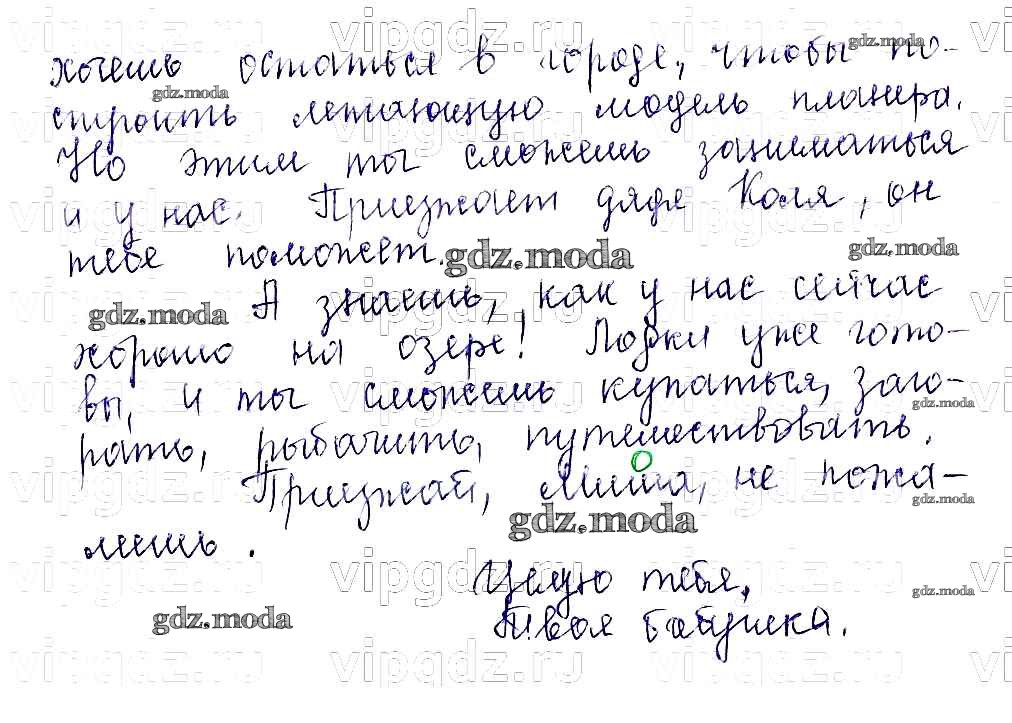 хочешь остаться в городе, чтобы по-
строить летающую модель планера.
Но этим ты сможешь заниматься
и у нас. Приезжает дядя Коля, он
тебе поможет.
А знаешь, как у нас сейчас
хорошо на озере! Лодки уже гото-
вы, и ты сможешь купаться, заго-
рать, рыбачить, путешествовать.
Приезжай, Миша, не пожа-
леешь.
Целую тебя,
Твоя бабушка.
gdz.moda
vipgdz.ru